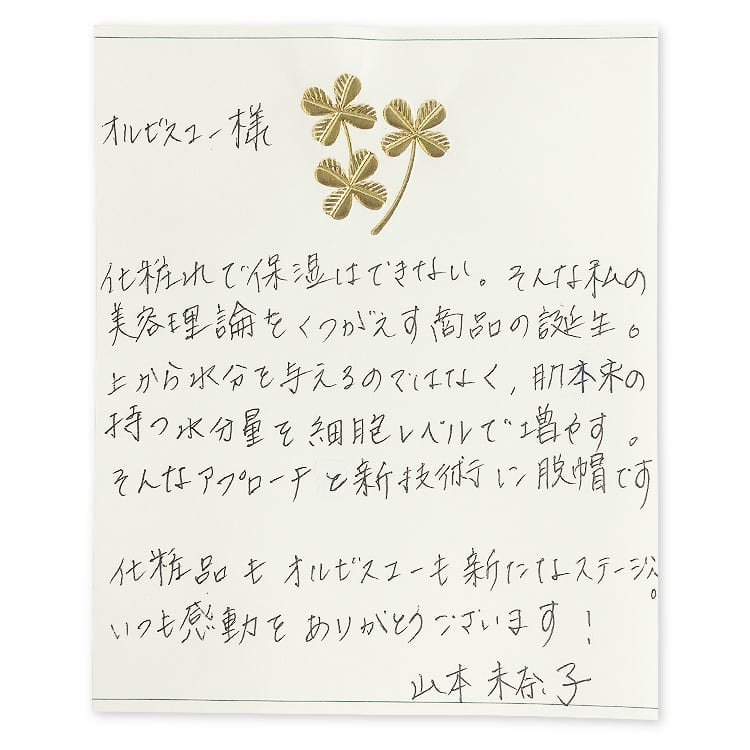 オルビスユー様
化粧水で保湿はできない。そんな私の
美容理論をくつがえす商品の誕生。
上から水分を与えるのではなく、肌本来の
持つ水分量を細胞レベルで増やす。
そんなアプローチと新技術に脱帽です
化粧品もオルビスユーも新たなステージへ。
いつも感動をありがとうございます!
山本未奈子